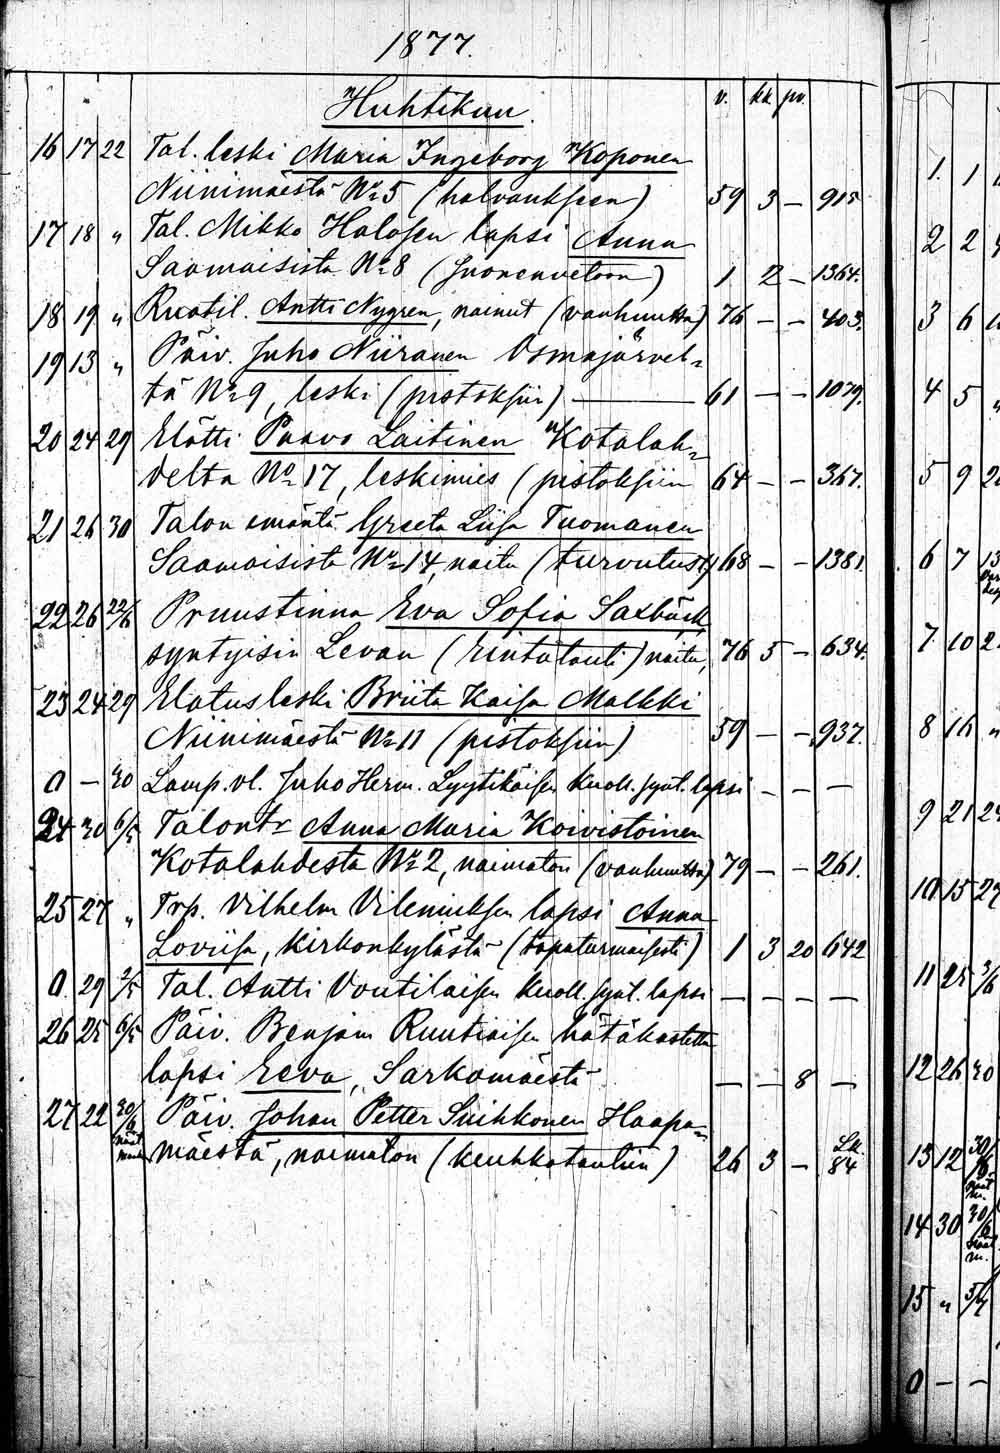 1877.
Huhtikuu. v. kk pv.
16 17 22 Tal. leski Maria Ingeborg Koponen
Niinimäestä No 5 (halvaukseen) 59 3 — 915
17 18 " Tal. Mikko Halosen lapsi Anna
Saamaisista No 8 (suonenvetoon) 1 2 — 1364.
18 19 " Ruotil. Antti Nygren, nainut (vanhuutta) 76 — — 403.
19 13 " Päiv. Juho Niiranen Osmajärvel-
tä No 9, leski (pistoksiin) — 61 — — 1079.
20 24 29 Elätti Paavo Laitinen Kotalah-
delta No 17, leskimies (pistoksiin 64 — — 367.
21 26 30 Talon emäntä Greeta Liisa Tuomanen
Saamaisista No 14, naitu (turvotusta) 68 — — 1381.
22 26 22/6 Pruustinna Eva Sofia Saxbäck,
syntyisin Levan (rintatauti) naitu, 76 5 — 634.
23 24 29 Elatusleski Briita Kaisa Malkki
Niinimäestä No 11 (pistoksiin) 59 — — 937.
0 — 30 Lamp. vl. Juho Herm. Lyytikäisen kuoll. synt. lapsi — — —
24 30 6/5 Talontr Anna Maria Koivistoinen
Kotalahdesta No 2, naimaton (vanhuutta) 79 — — 261.
25 27 " Trp. Vilhelm Vileniuksen lapsi Anna
Loviisa, kirkonkylästä (tapaturmaisesti) 1 3 20 642
0 29 2/5 Tal. Antti Voutilaisen kuoll. synt. lapsi — — — —
26 25 6/5 Päiv. Benjam Ruutiaisen hätäkastettu
lapsi Eeva, Sarkamäestä — — 8 —
27 22 30/6 Päiv. Johan Petter Suihkonen Haapa-
mäestä, naimaton (keuhkotautiin) 26 3 — Lk. 84
1. 1
2 2
3 6
4 5 "
5 9
6 7
7 10
8 16 "
9 21
10 15 27
11 25 3/6
12 26 30
13 12 30/6
14 30 30/6
15 "
0 — —